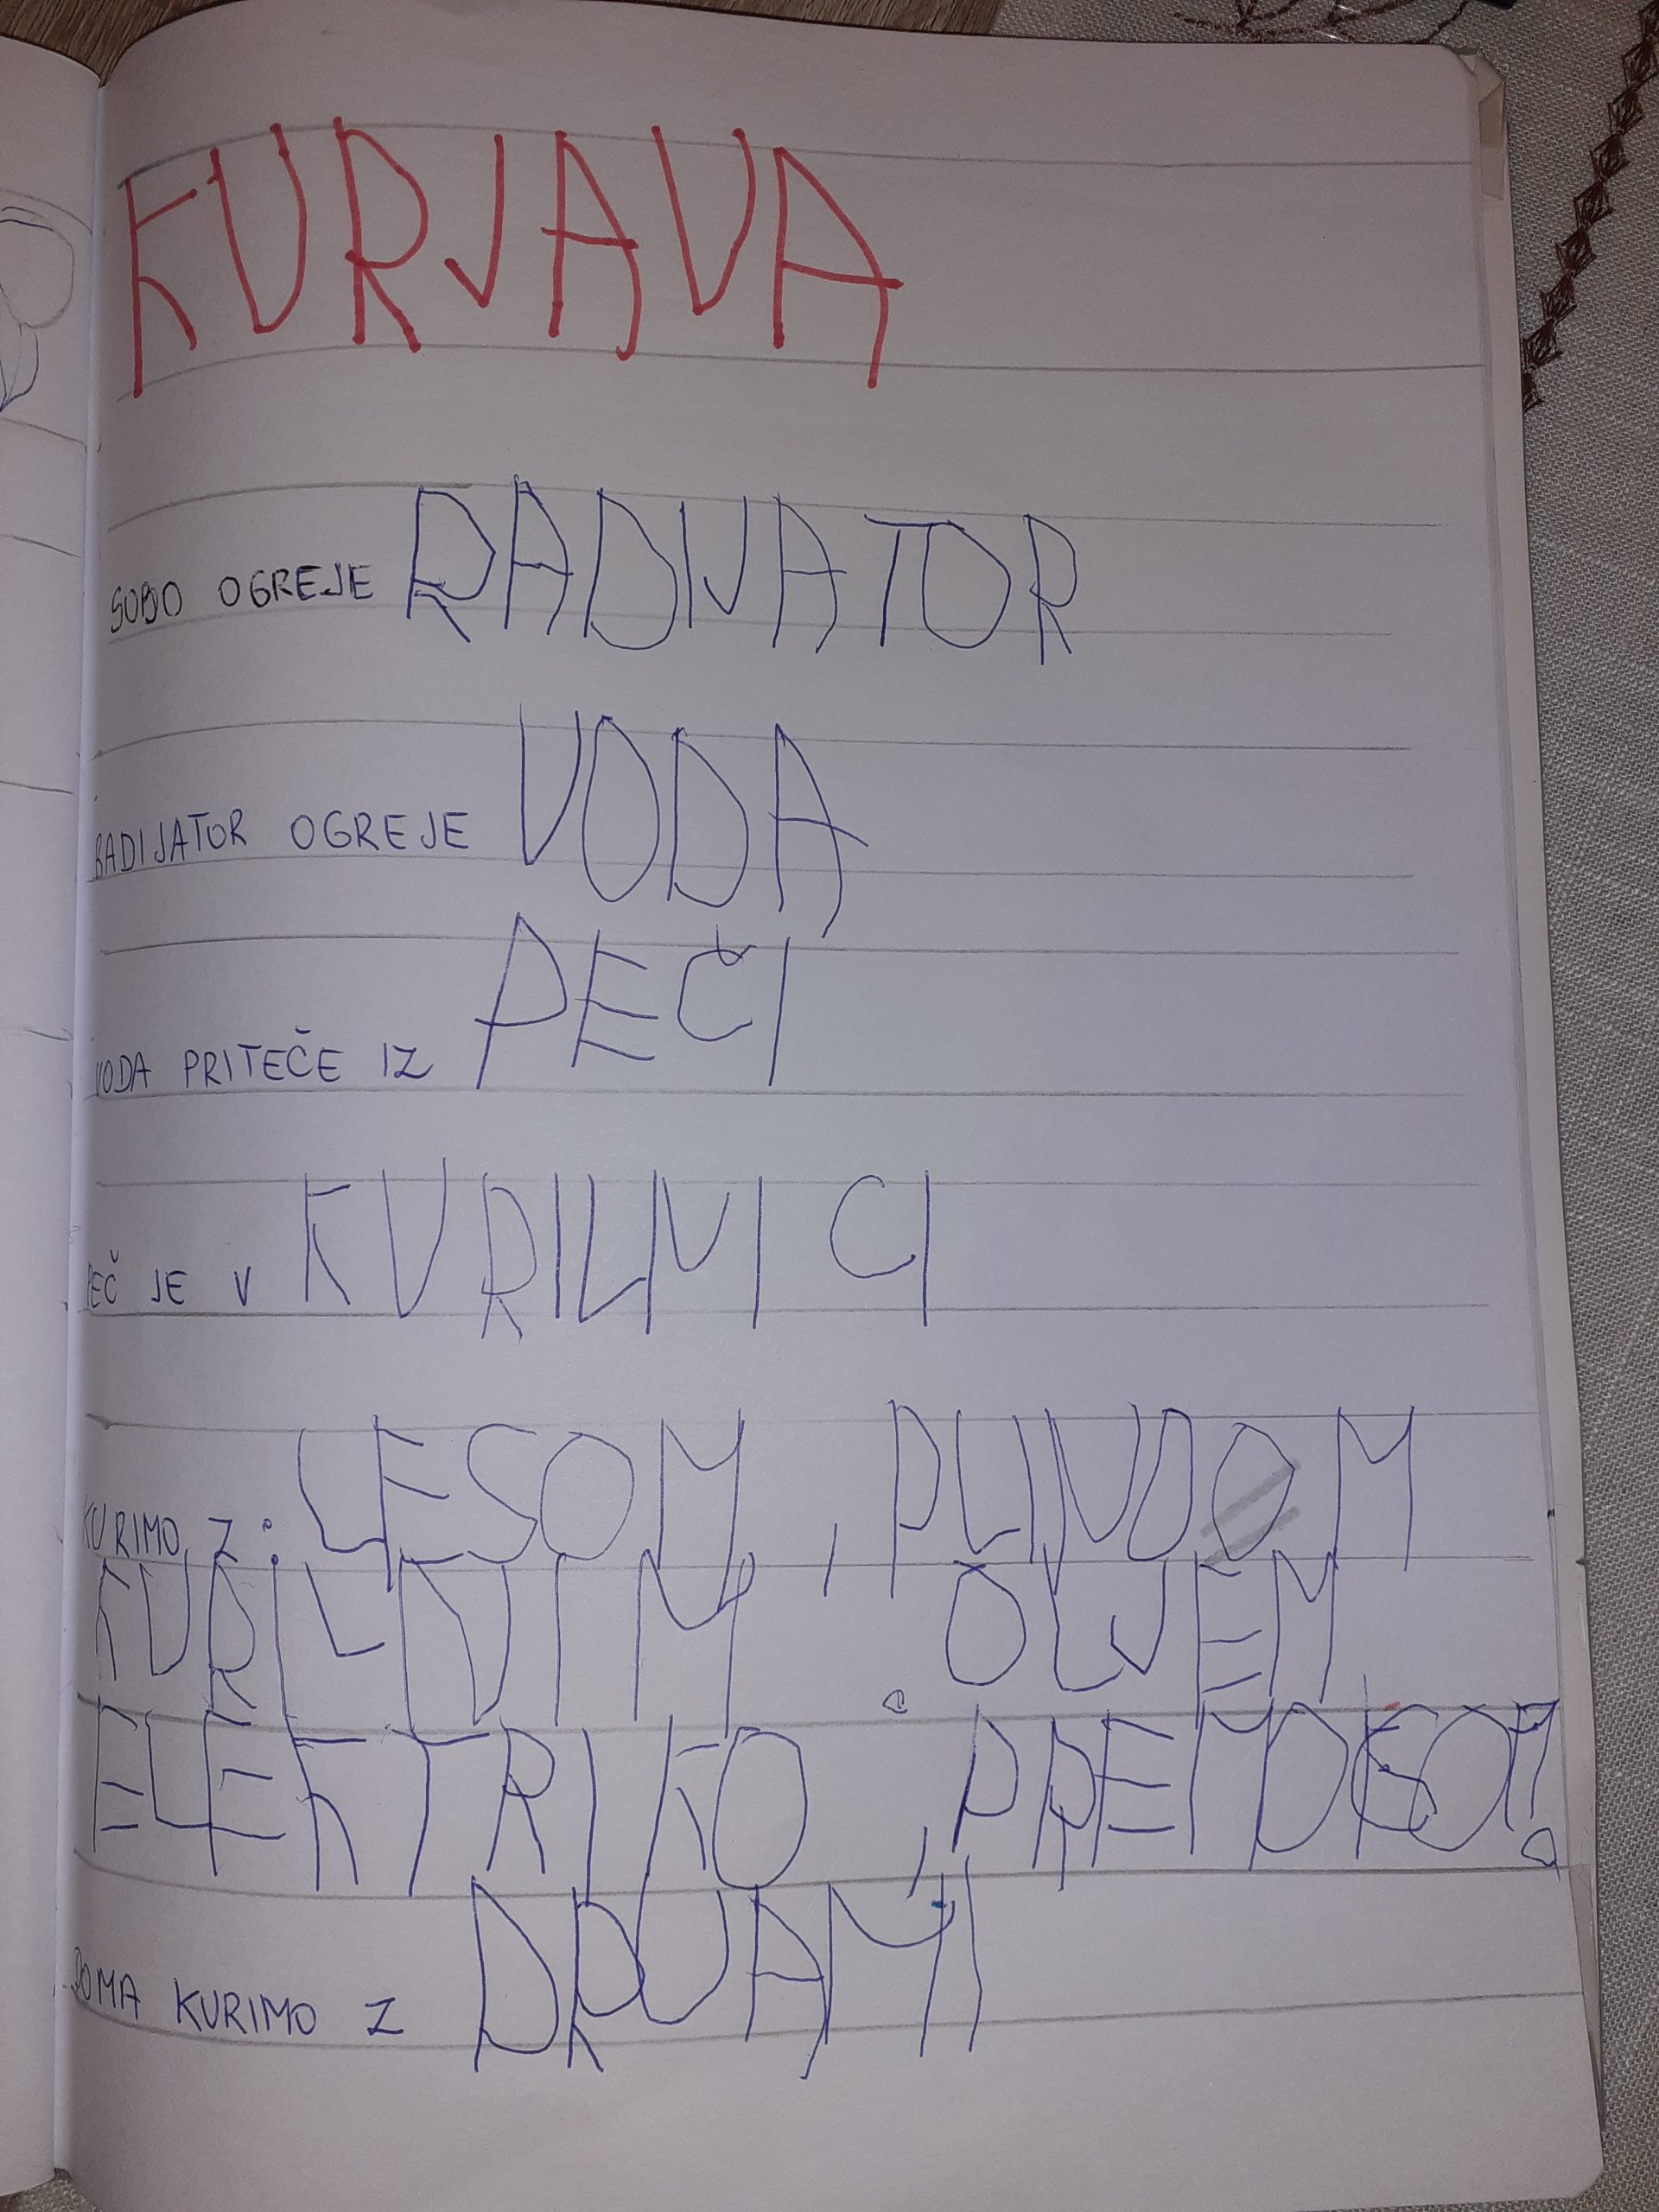 KURJAVA
SOBO OGREJE RADIJATOR
RADIJATOR OGREJE VODA
VODA PRITEČE IZ PEČI
PEČ JE V KURILNICI
KURIMO Z: LESOM, PLINOOM
KURILNIM OLJEM,
ELEKTRIKO, PREMOGOM.
DOMA KURIMO Z DRVAMI